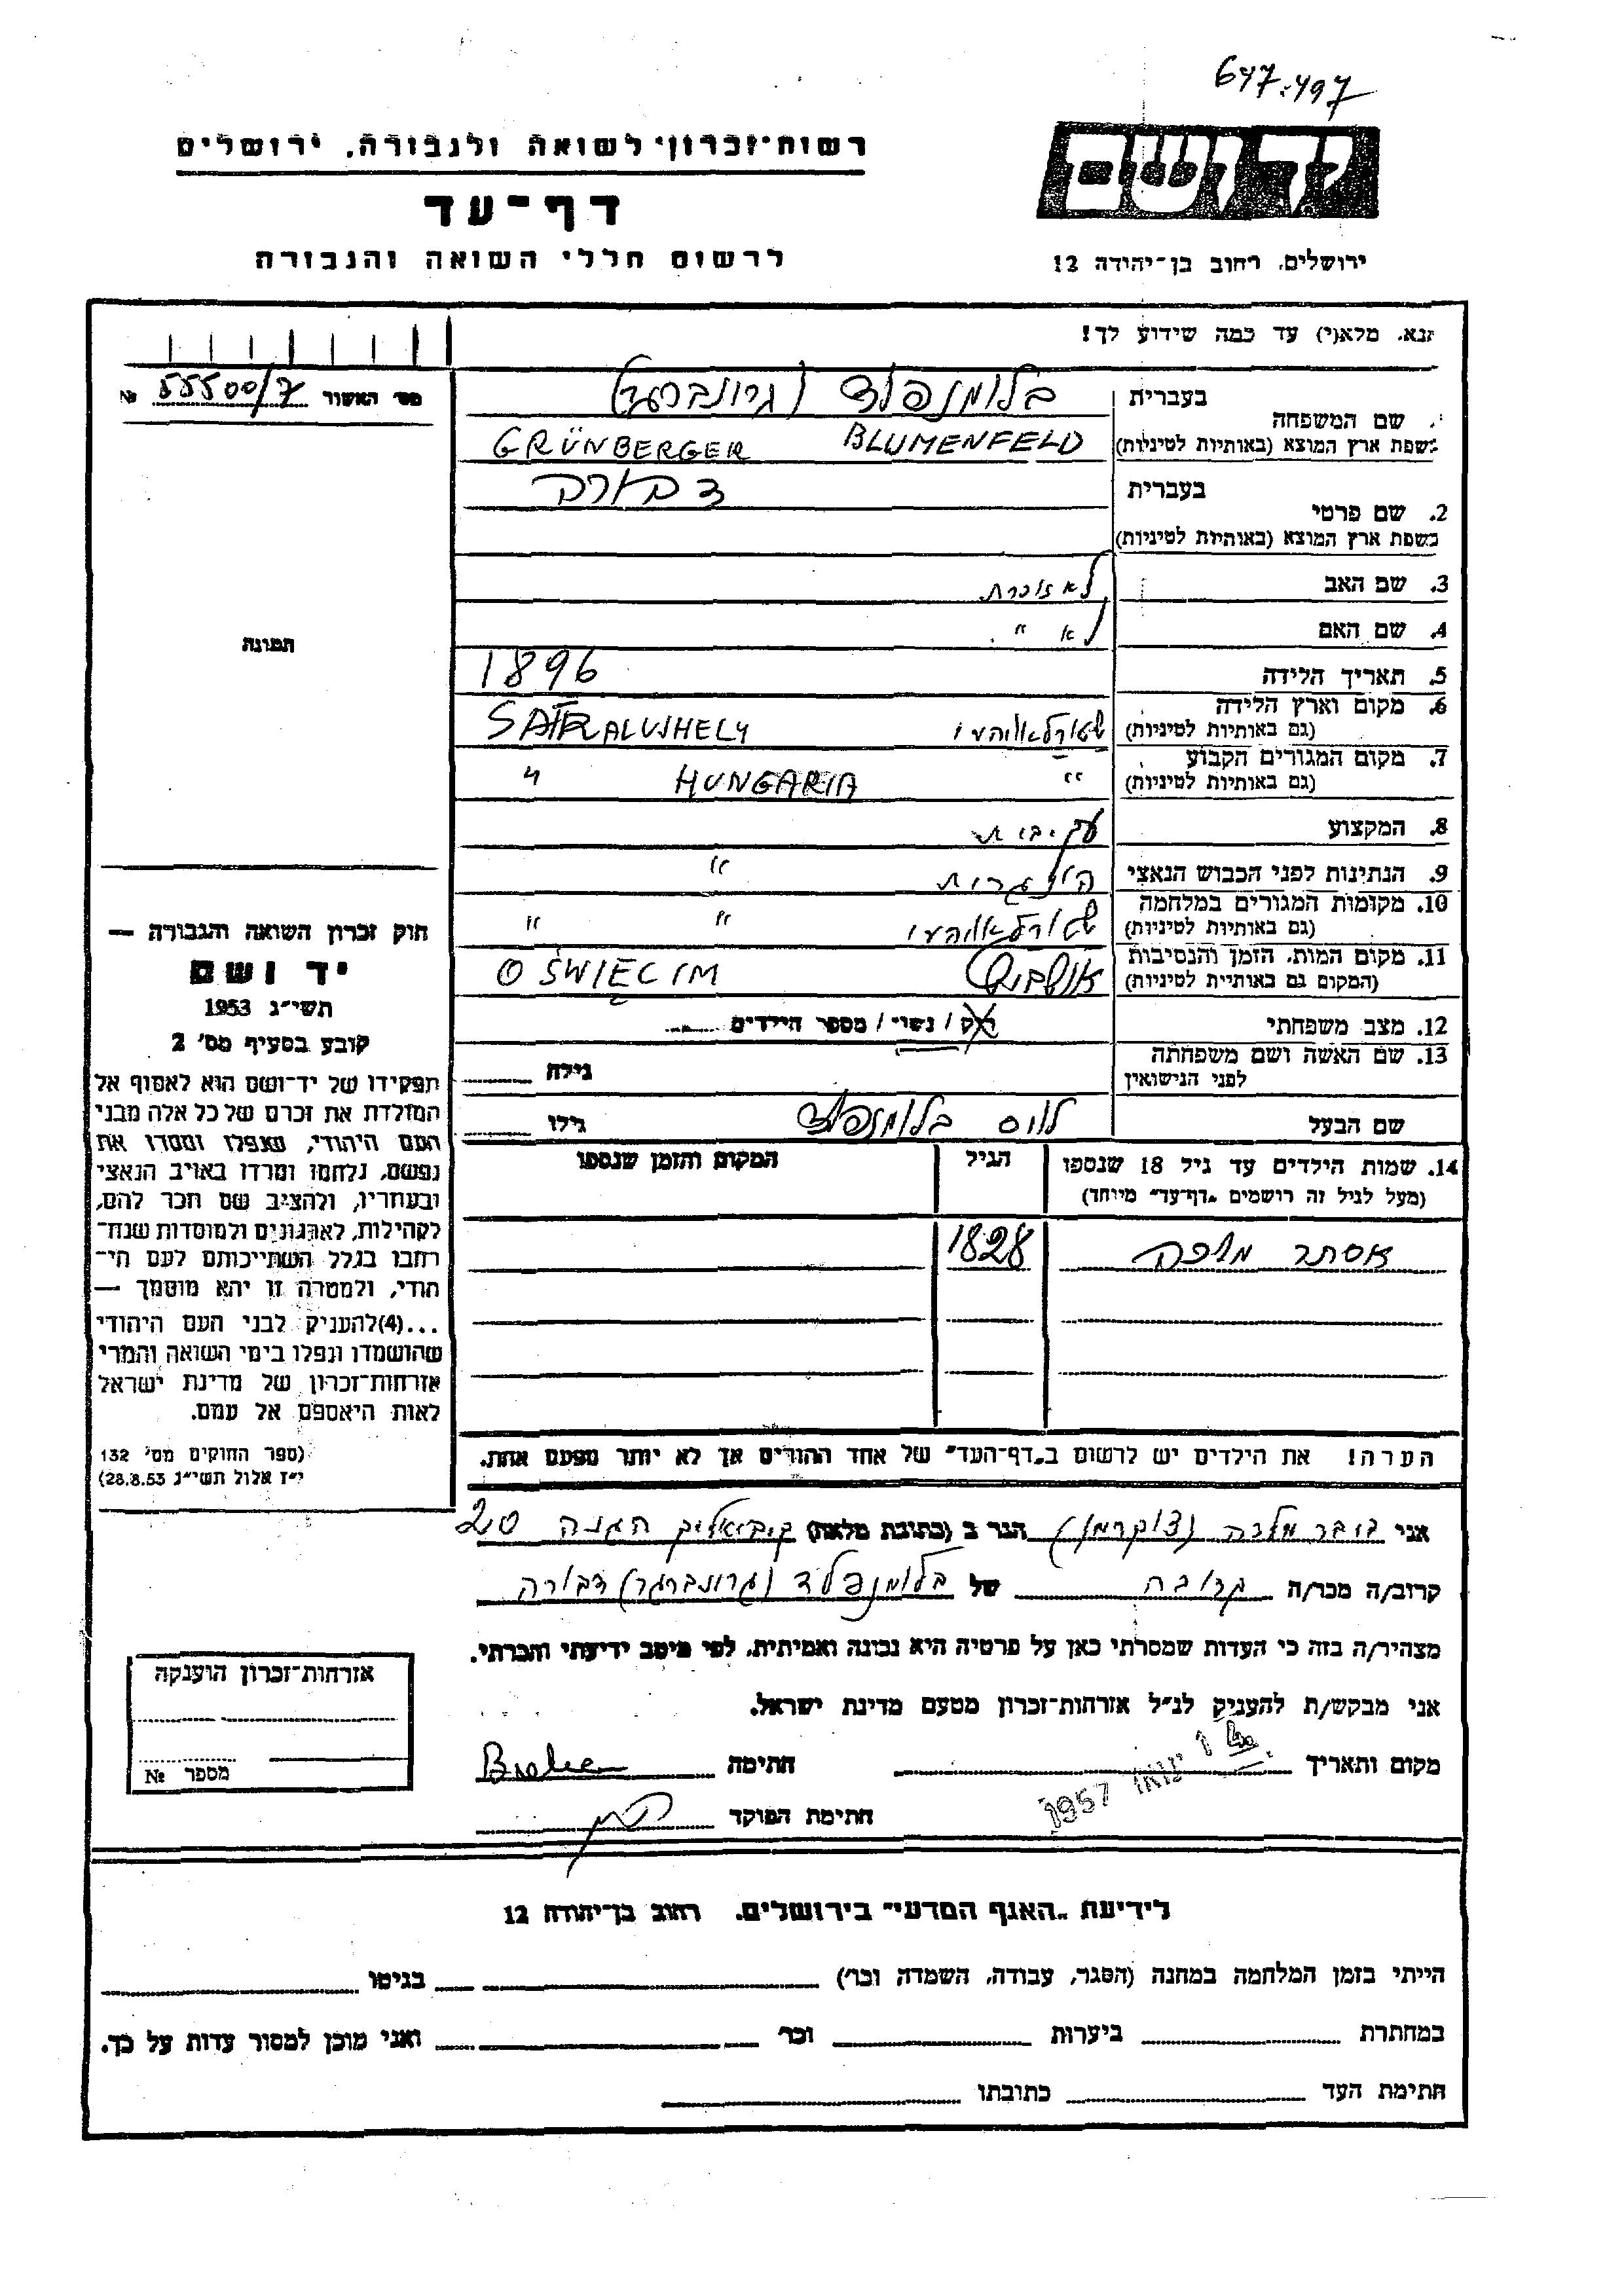 647:497
רשות־זכרון לשואה ולגבורה, ירושלים
דף־עד
לרשום חללי השואה והגבורה
יד ושם
ירושלים, רחוב בן־יהודה 12
נא, מלא(י) עד כמה שידוע לך!
מס׳ האשור 55500/7 №
שם המשפחה
בעברית בלומנפלד (גרונברגר)
בשפת ארץ המוצא (באותיות לטיניות) BLUMENFELD GRÜNBERGER
2. שם פרטי
בעברית דבורה
בשפת ארץ המוצא (באותיות לטיניות)
3. שם האב לא זוכרת
4. שם האם לא "
5. תאריך הלידה 1896
6. מקום וארץ הלידה
(גם באותיות לטיניות) שטורלאוהעו SATRALUJHELY
7. מקום המגורים הקבוע
(גם באותיות לטיניות) " HUNGARIA "
8. המקצוע עק.בית
9. הנתינות לפני הכבוש הנאצי הונגרית "
10. מקומות המגורים במלחמה
(גם באותיות לטיניות) שטורלאוהעו " "
11. מקום המות, הזמן והנסיבות
(המקום גם באותיות לטיניות) אושביץ OŚWIĘCIM
12. מצב משפחתי רוק / נשוי / מספר הילדים
13. שם האשה ושם משפחתה
לפני הנישואין גילה
שם הבעל לויס בלומנפלד גילו
14. שמות הילדים עד גיל 18 שנספו
(מעל לגיל זה רושמים „דף־עד” מיוחד)
הגיל
המקום והזמן שנספו
אסתר מלכה 1828
הערה! את הילדים יש לרשום ב„דף־העד” של אחד ההורים אך לא יותר מפעם אחת.
תמונה
חוק זכרון השואה והגבורה —
יד ושם
תשי״ג 1953
קובע בסעיף מס׳ 2
תפקידו של יד־ושם הוא לאסוף אל
המולדת את זכרם של כל אלה מבני
העם היהודי, שנפלו ומסרו את
נפשם, נלחמו ומרדו באויב הנאצי
ובעוזריו, ולהציב שם וזכר להם,
לקהילות, לארגונים ולמוסדות שנח־
רחבו בגלל השתייכותם לעם הי־
הודי, ולמטרה זו יהא מוסמך —
...(4)להעניק לבני העם היהודי
שהושמדו ונפלו בימי השואה והמרי
אזרחות־זכרון של מדינת ישראל
לאות היאספם אל עמם.
(ספר החוקים מס׳ 132
י״ז אלול תשי״ג 28.8.53)
אני בובר מלכה (צוקרמן) הגר ב (כתובת מלאה) קיביאליק הגנה 20
קרוב/ה מכר/ה קרובה של בלומנפלד (גרונברגר) דבורה
מצהיר/ה בזה כי העדות שמסרתי כאן על פרטיה היא נכונה ואמיתית, לפי מיטב ידיעתי והכרתי.
אני מבקש/ת להעניק לנ״ל אזרחות־זכרון מטעם מדינת ישראל.
מקום ותאריך 14 ינואר 1957 חתימה
חתימת הפוקד
אזרחות־זכרון הוענקה
מספר №
לידיעת „האגף המדעי” בירושלים, רחוב בן־יהודה 12
הייתי בזמן המלחמה במחנה (הסגר, עבודה, השמדה וכו׳) בגיטו
במחתרת ביערות וכו׳ ואני מוכן למסור עדות על כך.
חתימת העד כתובתו